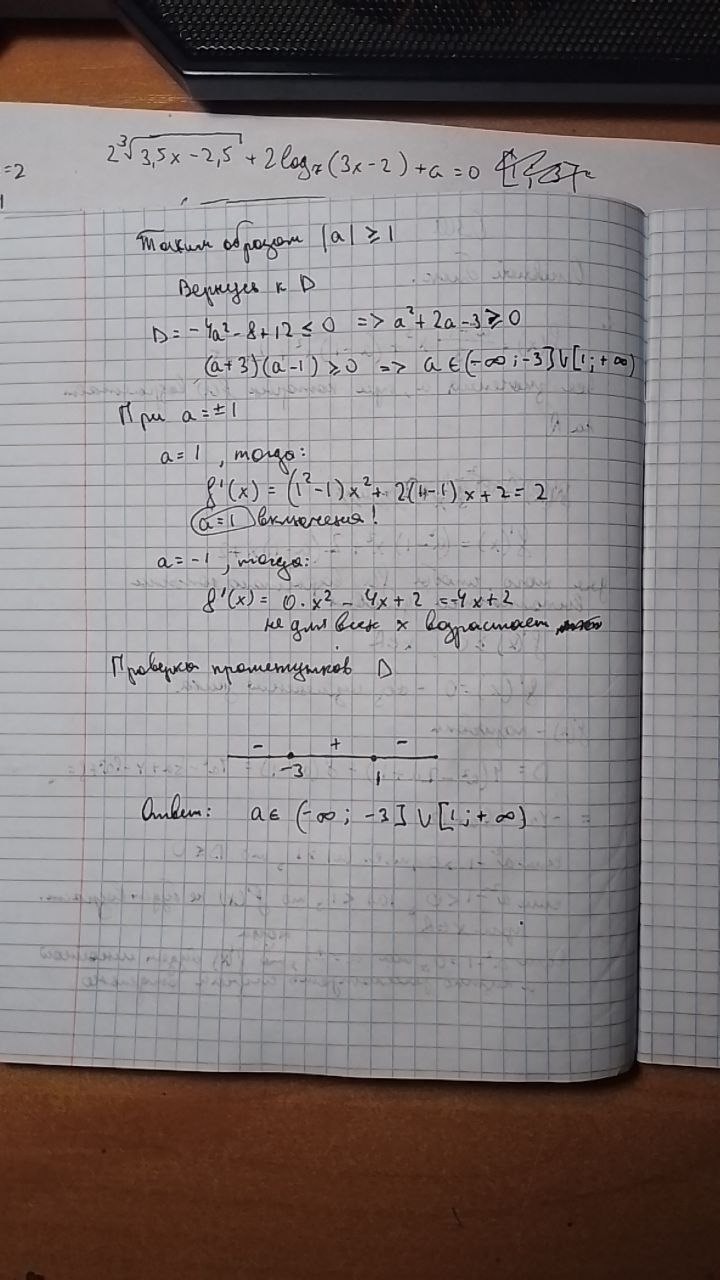 =2
2∛(3,5x-2,5) + 2log₇(3x-2) + a = 0
Таким образом |a| ≥ 1
Вернусь к D
D = -4a² - 8 + 12 ≤ 0 => a² + 2a - 3 ≥ 0
(a+3)(a-1) ≥ 0 => a ∈ (-∞; -3] ∪ [1; +∞)
При a = ±1
a = 1, тогда:
f'(x) = (1²-1)x² + 2(1-1)x + 2 = 2
a=1 включения!
a = -1, тогда:
f'(x) = 0·x² - 4x + 2 = -4x + 2
не для всех x возрастает
Проверка промежутков D
- + -
-3 1
Ответ: a ∈ (-∞; -3] ∪ [1; +∞)